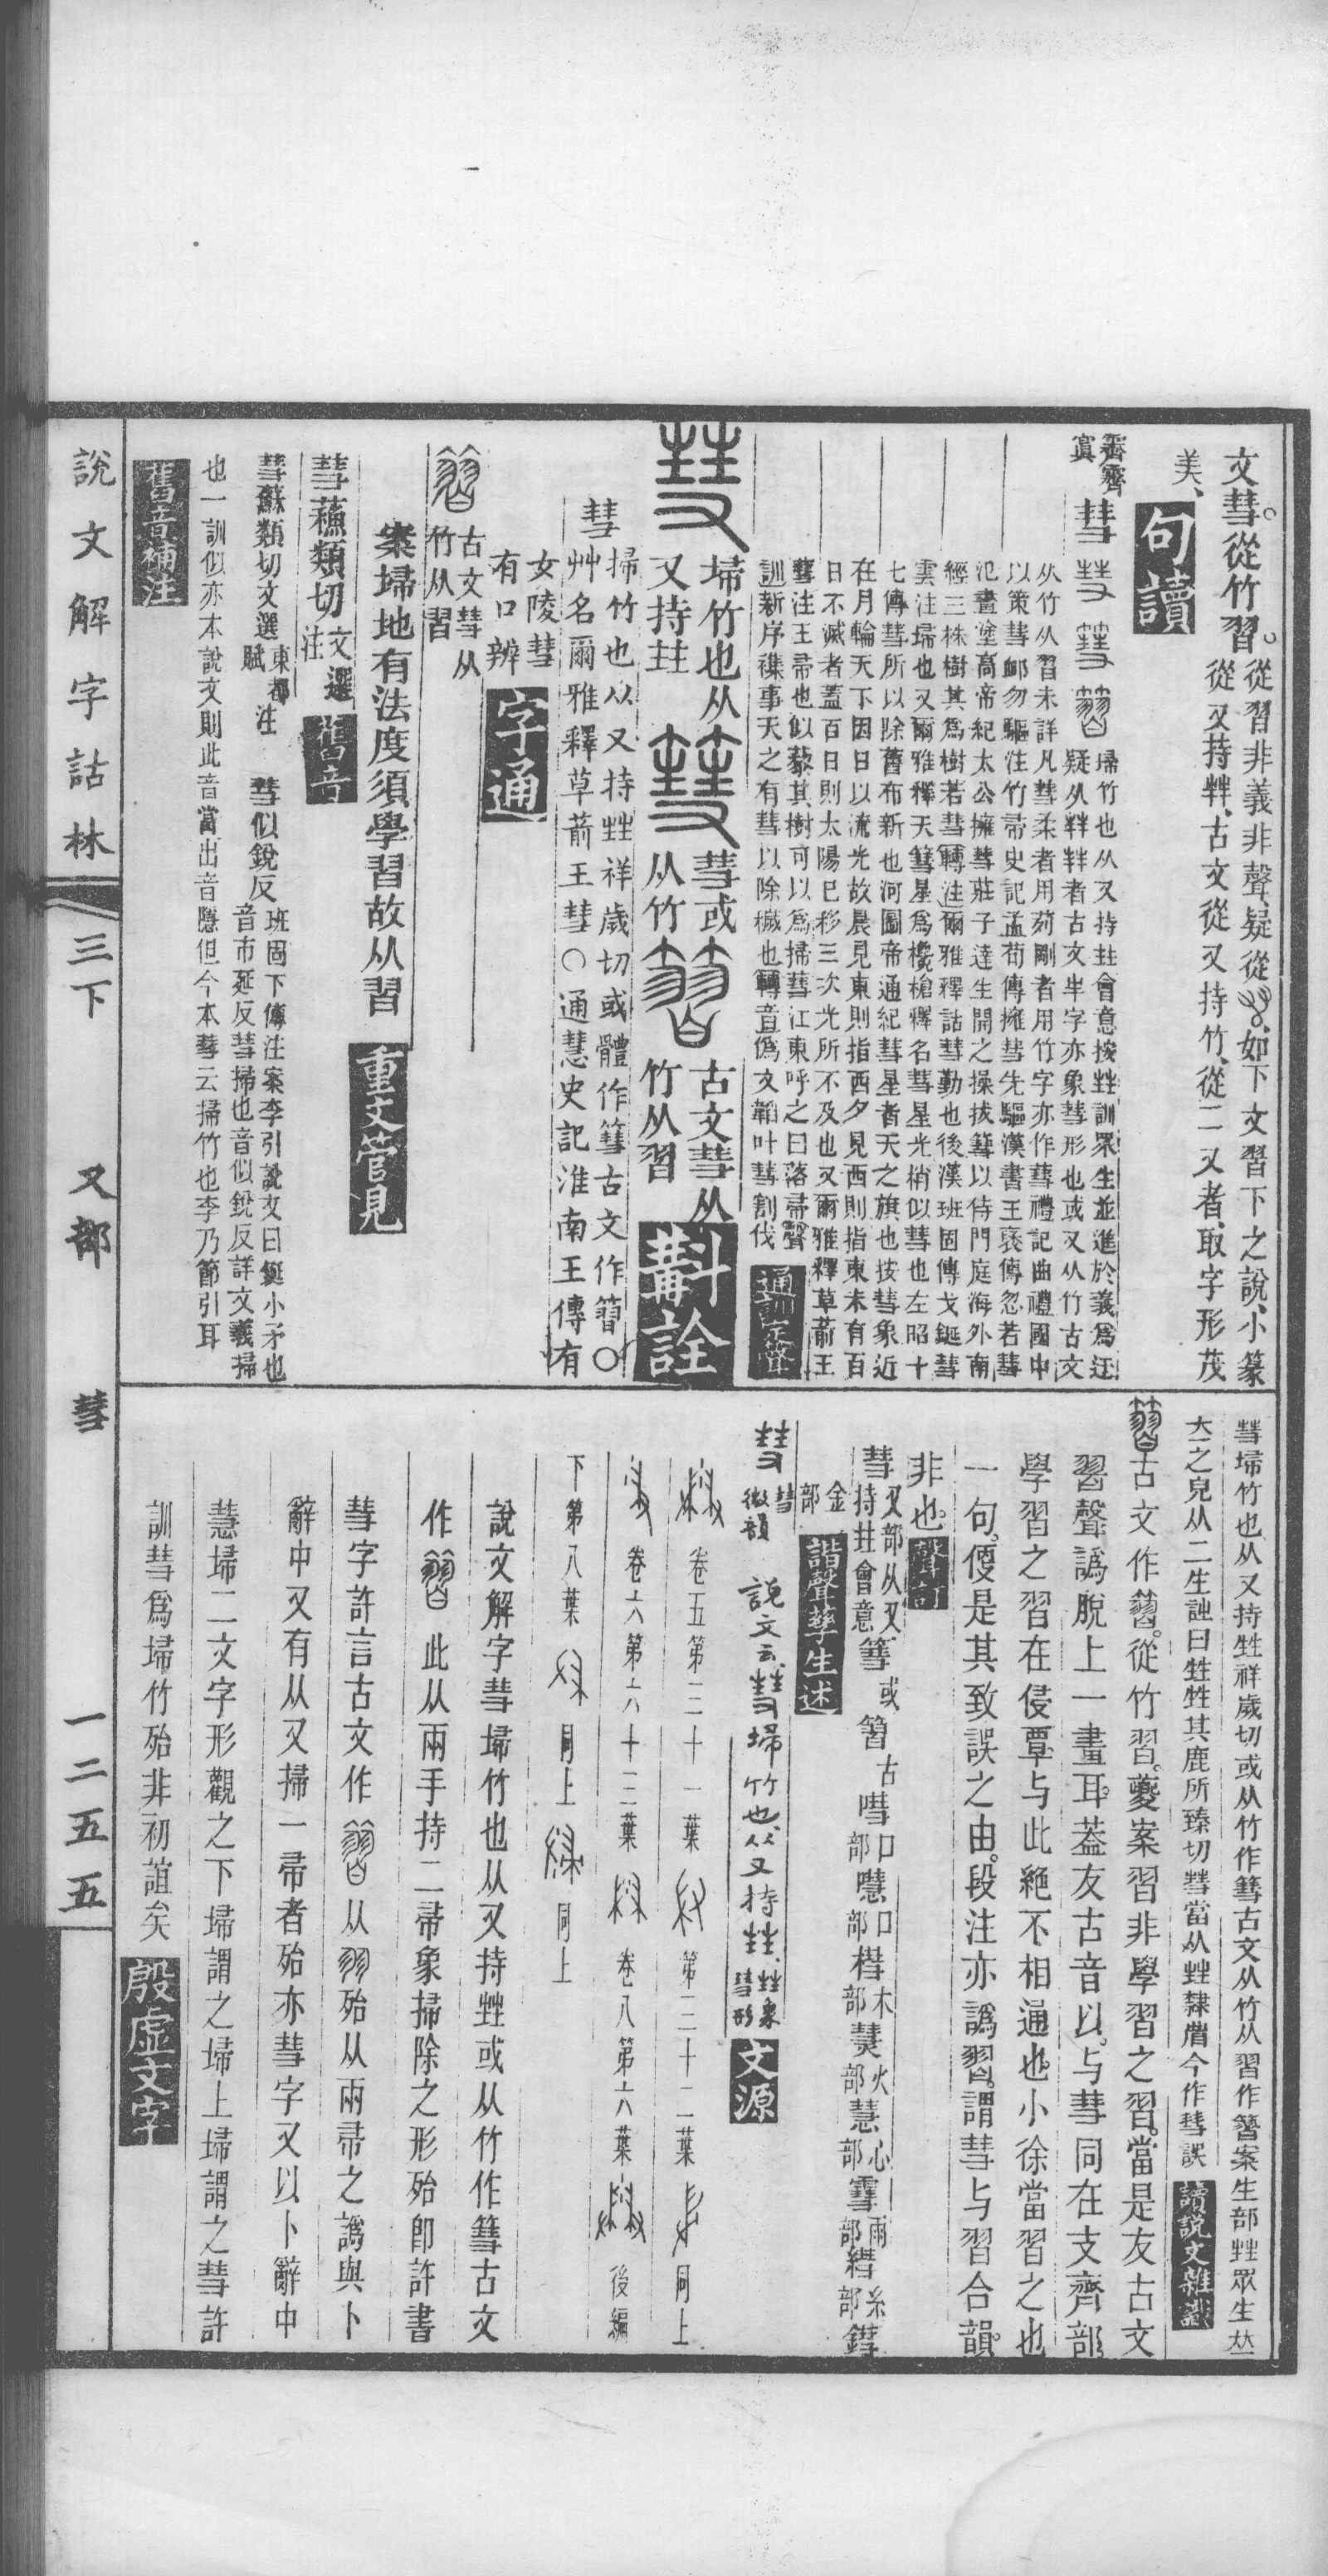 文彗。從竹習。從習非義非聲、疑從、如下文習下之說、小篆
從又持𡴆、古文從又持竹、從二又者、取字形茂
美、句讀
彗
埽竹也从又持𡴆會意按甡訓眾生並進於義爲迂
疑从𦍎𦍎者古文半字亦象彗形也或又从竹古文
从竹从習未詳凡彗柔者用茢剛者用竹字亦作䔒禮記曲禮國中
以策彗卹勿驅注竹帚史記孟荀傳擁彗先驅漢書王襃傳忽若彗
氾畫塗高帝紀太公擁彗莊子達生開之操拔篲以侍門庭海外南
經三株樹其爲樹若彗轉注爾雅釋詁彗勤也後漢班固傳戈鋋彗
雲注埽也又爾雅釋天篲星爲欃槍釋名彗星光梢似彗也左昭十
七傳彗所以除舊布新也河圖帝通紀彗星者天之旗也按彗象近
在月輪天下因日以流光故晨見東則指西夕見西則指東末有百
日不滅者蓋百日則太陽已移三次光所不及也又爾雅釋草葥王
䔒注王帚也似藜其樹可以爲掃彗江東呼之曰落帚聲
訓新序襍事天之有彗以除穢也轉音僞文韜叶彗割伐
通訓定聲
埽竹也从
又持𡴆
彗或
从竹
古文彗从
竹从習
斠詮
彗
掃竹也从又持甡祥歲切或體作篲古文作𥳑○
艸名爾雅釋草葥王彗○通慧史記淮南王傳有
女陵彗
有口辨
字通
古文彗从
竹从習
案埽地有法度須學習故从習
重文管見
彗蘓類切文選注
舊音
彗蘇類切文選東都賦注
彗似銳反班固下傳注案李引說文曰鋋小矛也
音市延反彗掃也音似銳反詳文義掃
也一訓似亦本說文則此音當出音隱但今本彗云掃竹也李乃節引耳
舊音補注
彗埽竹也从又持甡祥歲切或从竹作篲古文从竹从習作𥳑案生部甡眾生竝
立之皃从二生詩曰甡甡其鹿所臻切彗當从甡隸㞕今作彗誤
讀說文雜識
古文作。從竹習。夔案習非學習之習。當是友古文
習聲譌脫上一畫耳。葢友古音以。与彗同在支齊部
學習之習在侵覃与此絶不相通也小徐當習之也
一句。便是其致誤之由。段注亦譌習。謂彗与習合韻。
非也。聲訂
彗又部从又持𡴆會意篲或𥳑古嘒口部嚖口部槥木部熭火部慧心部䨮雨部繐糸部鏏金部
諧聲孳生述
彗彗微韻說文云彗埽竹也从又持甡、甡象彗形
文源
卷五第三十一葉 第三十二葉 同上
卷六第六十三葉 卷八第六葉 後編
下第八葉 同上 同上
說文解字彗埽竹也从又持甡或从竹作篲古文
作 此从兩手持二帚象掃除之形殆卽許書
彗字許言古文作 从 殆从兩帚之譌與卜
辭中又有从又掃一帚者殆亦彗字又以卜辭中
慧埽二文字形觀之下埽謂之埽上埽謂之彗許
訓彗爲埽竹殆非初誼矣
殷虛文字
說文解字詁林 三下 又部 彗 一二五五